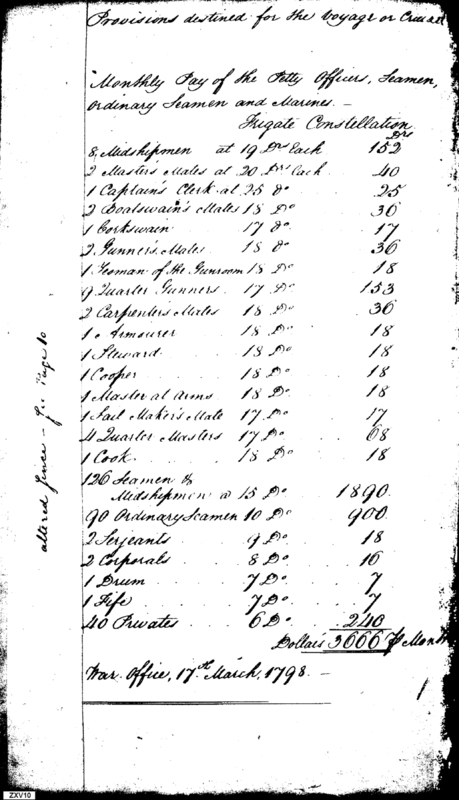 Provisions destined for the Voyage or Cruize
Monthly Pay of the Petty Officers, Seamen,
Ordinary Seamen and Marines. —
Frigate Constellation
Drs
8 Midshipmen at 19 Drs Each 152
2 Masters Mates at 20 Drs Each 40
1 Captain's Clerk at 25 do 25
2 Boatswain's Mates 18 Do 36
1 Corkswain 17 do 17
2 Gunner's Mates 18 do 36
1 Yeoman of the Gunroom 18 Do 18
9 Quarter Gunners 17 Do 153
2 Carpenter's Mates 18 Do 36
1 Armourer 18 Do 18
1 Steward 18 Do 18
1 Cooper 18 Do 18
1 Master at Arms 18 Do 18
1 Sail Maker's Mate 17 Do 17
4 Quarter Masters 17 Do 68
1 Cook 18 Do 18
126 Seamen &
Midshipmen a 15 Do 1890
90 Ordinary Seamen 10 Do 900
2 Serjeants 9 Do 18
2 Corporals 8 Do 16
1 Drum 7 Do 7
1 Fife 7 Do 7
40 Privates 6 Do 240
Dollars 3666 ⅌ Month
War Office, 17th March, 1798. —
1
altered since — See Page 10
ZXV10